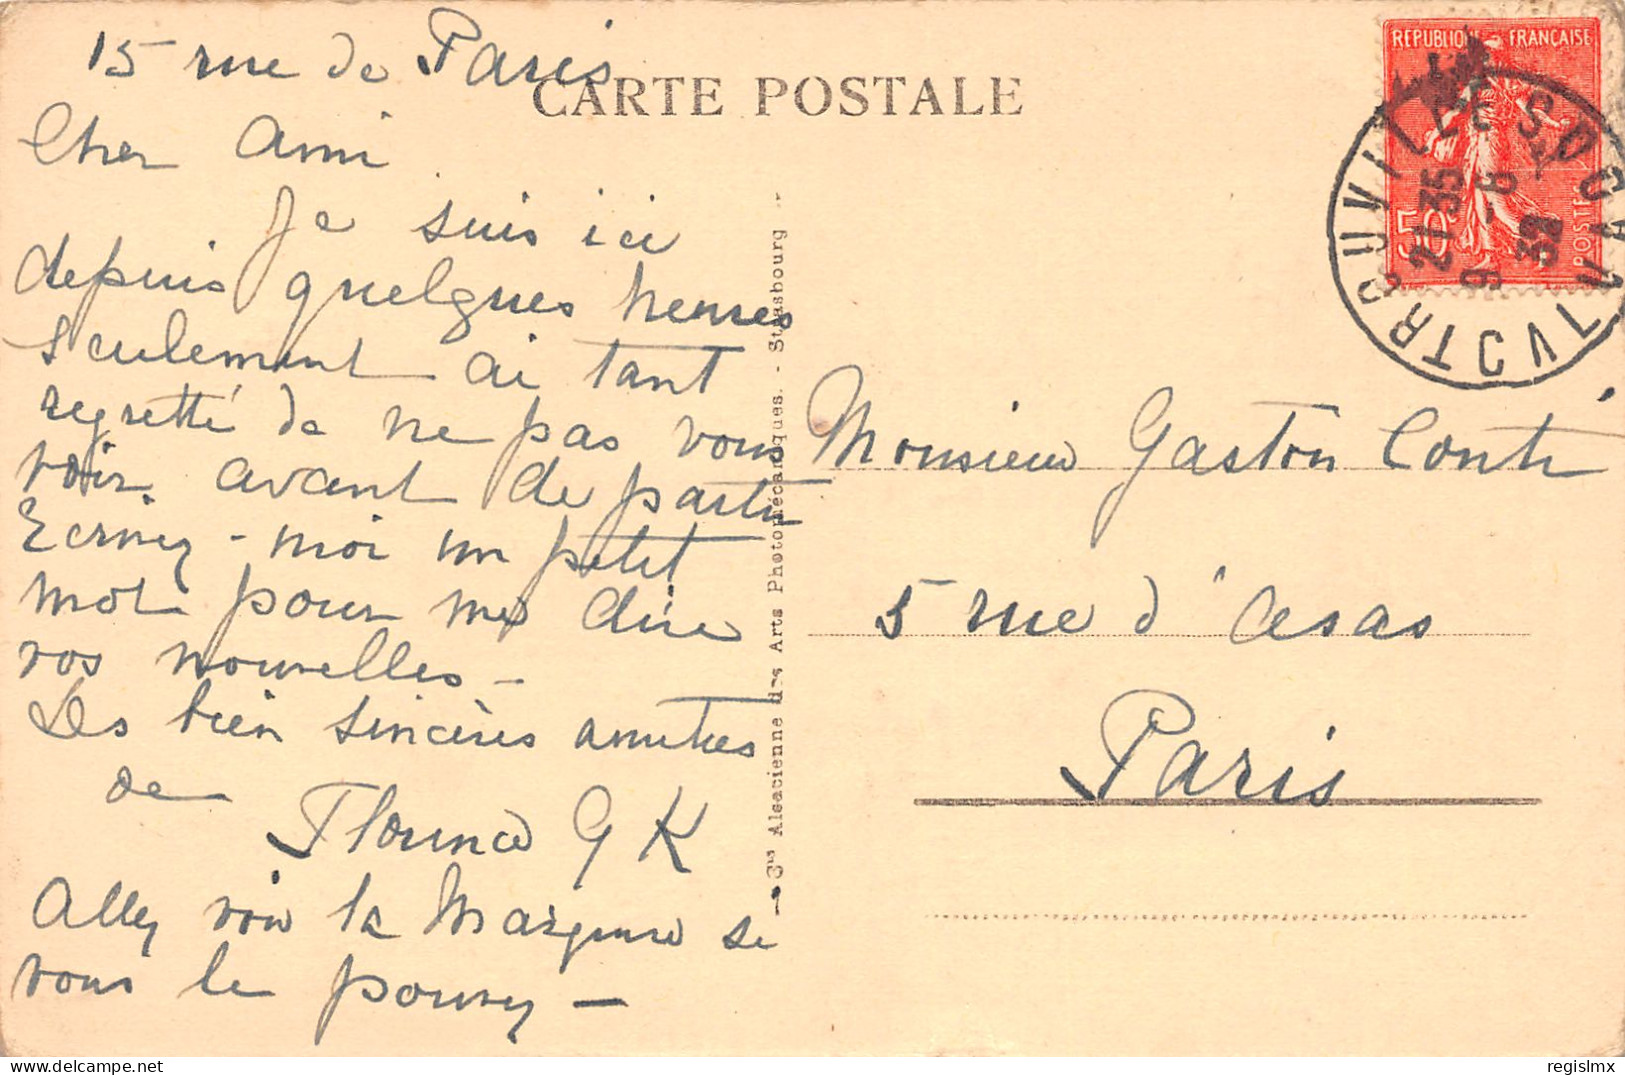 15 rue de Paris
CARTE POSTALE
Cher Ami
Je suis ici
depuis quelques heures
seulement ai tant
regretté de ne pas vous
voir avant de partir
Ecrivez-moi un petit
mot pour me dire
vos nouvelles -
Les bien sincères amitiés
de
Florence G K
Allez voir la si
vous le pouvez -
Cie Alsacienne des Arts Photomécaniques. - Strasbourg -
REPUBLIQUE FRANÇAISE
50
POSTES
TROUVILLE S
CALVADOS
21 35
9 - 6
32
Monsieur Gaston Conti
5 rue d'Assas
Paris
regislmx